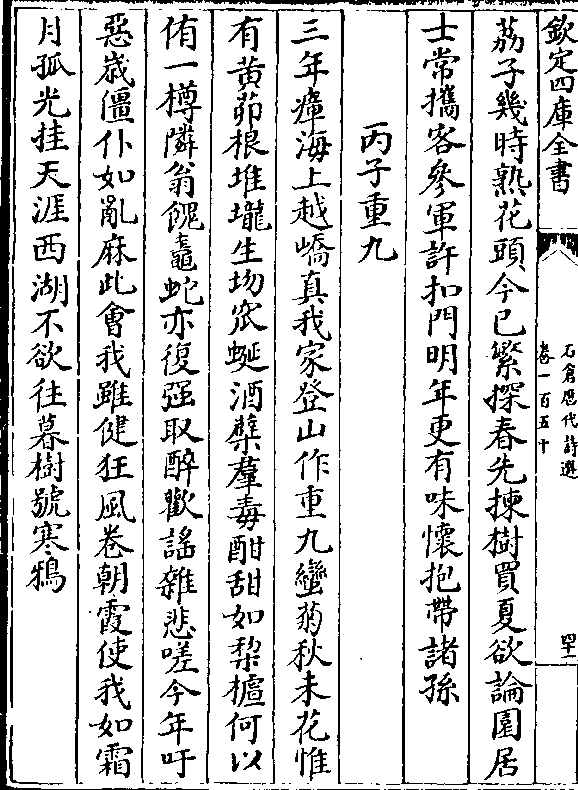 欽定四庫全書
石倉歷代詩選
卷一百五十
四十一
荔子幾時熟花頭今已繁探春先揀樹買夏欲論園居
士常攜客參軍許扣門明年更有味懷抱帶諸孫
丙子重九
三年瘴海上越嶠真我家登山作重九蠻菊秋未花惟
有黃茆根堆壠生坳窊蜒酒糵羣毒酣甜如棃樝何以
侑一樽隣翁餽䵷蛇亦復强取醉歡謡雜悲嗟今年吁
惡歲僵仆如亂麻此會我雖健狂風卷朝霞使我如霜
月孤光挂天涯西湖不欲往暮樹號寒鴉